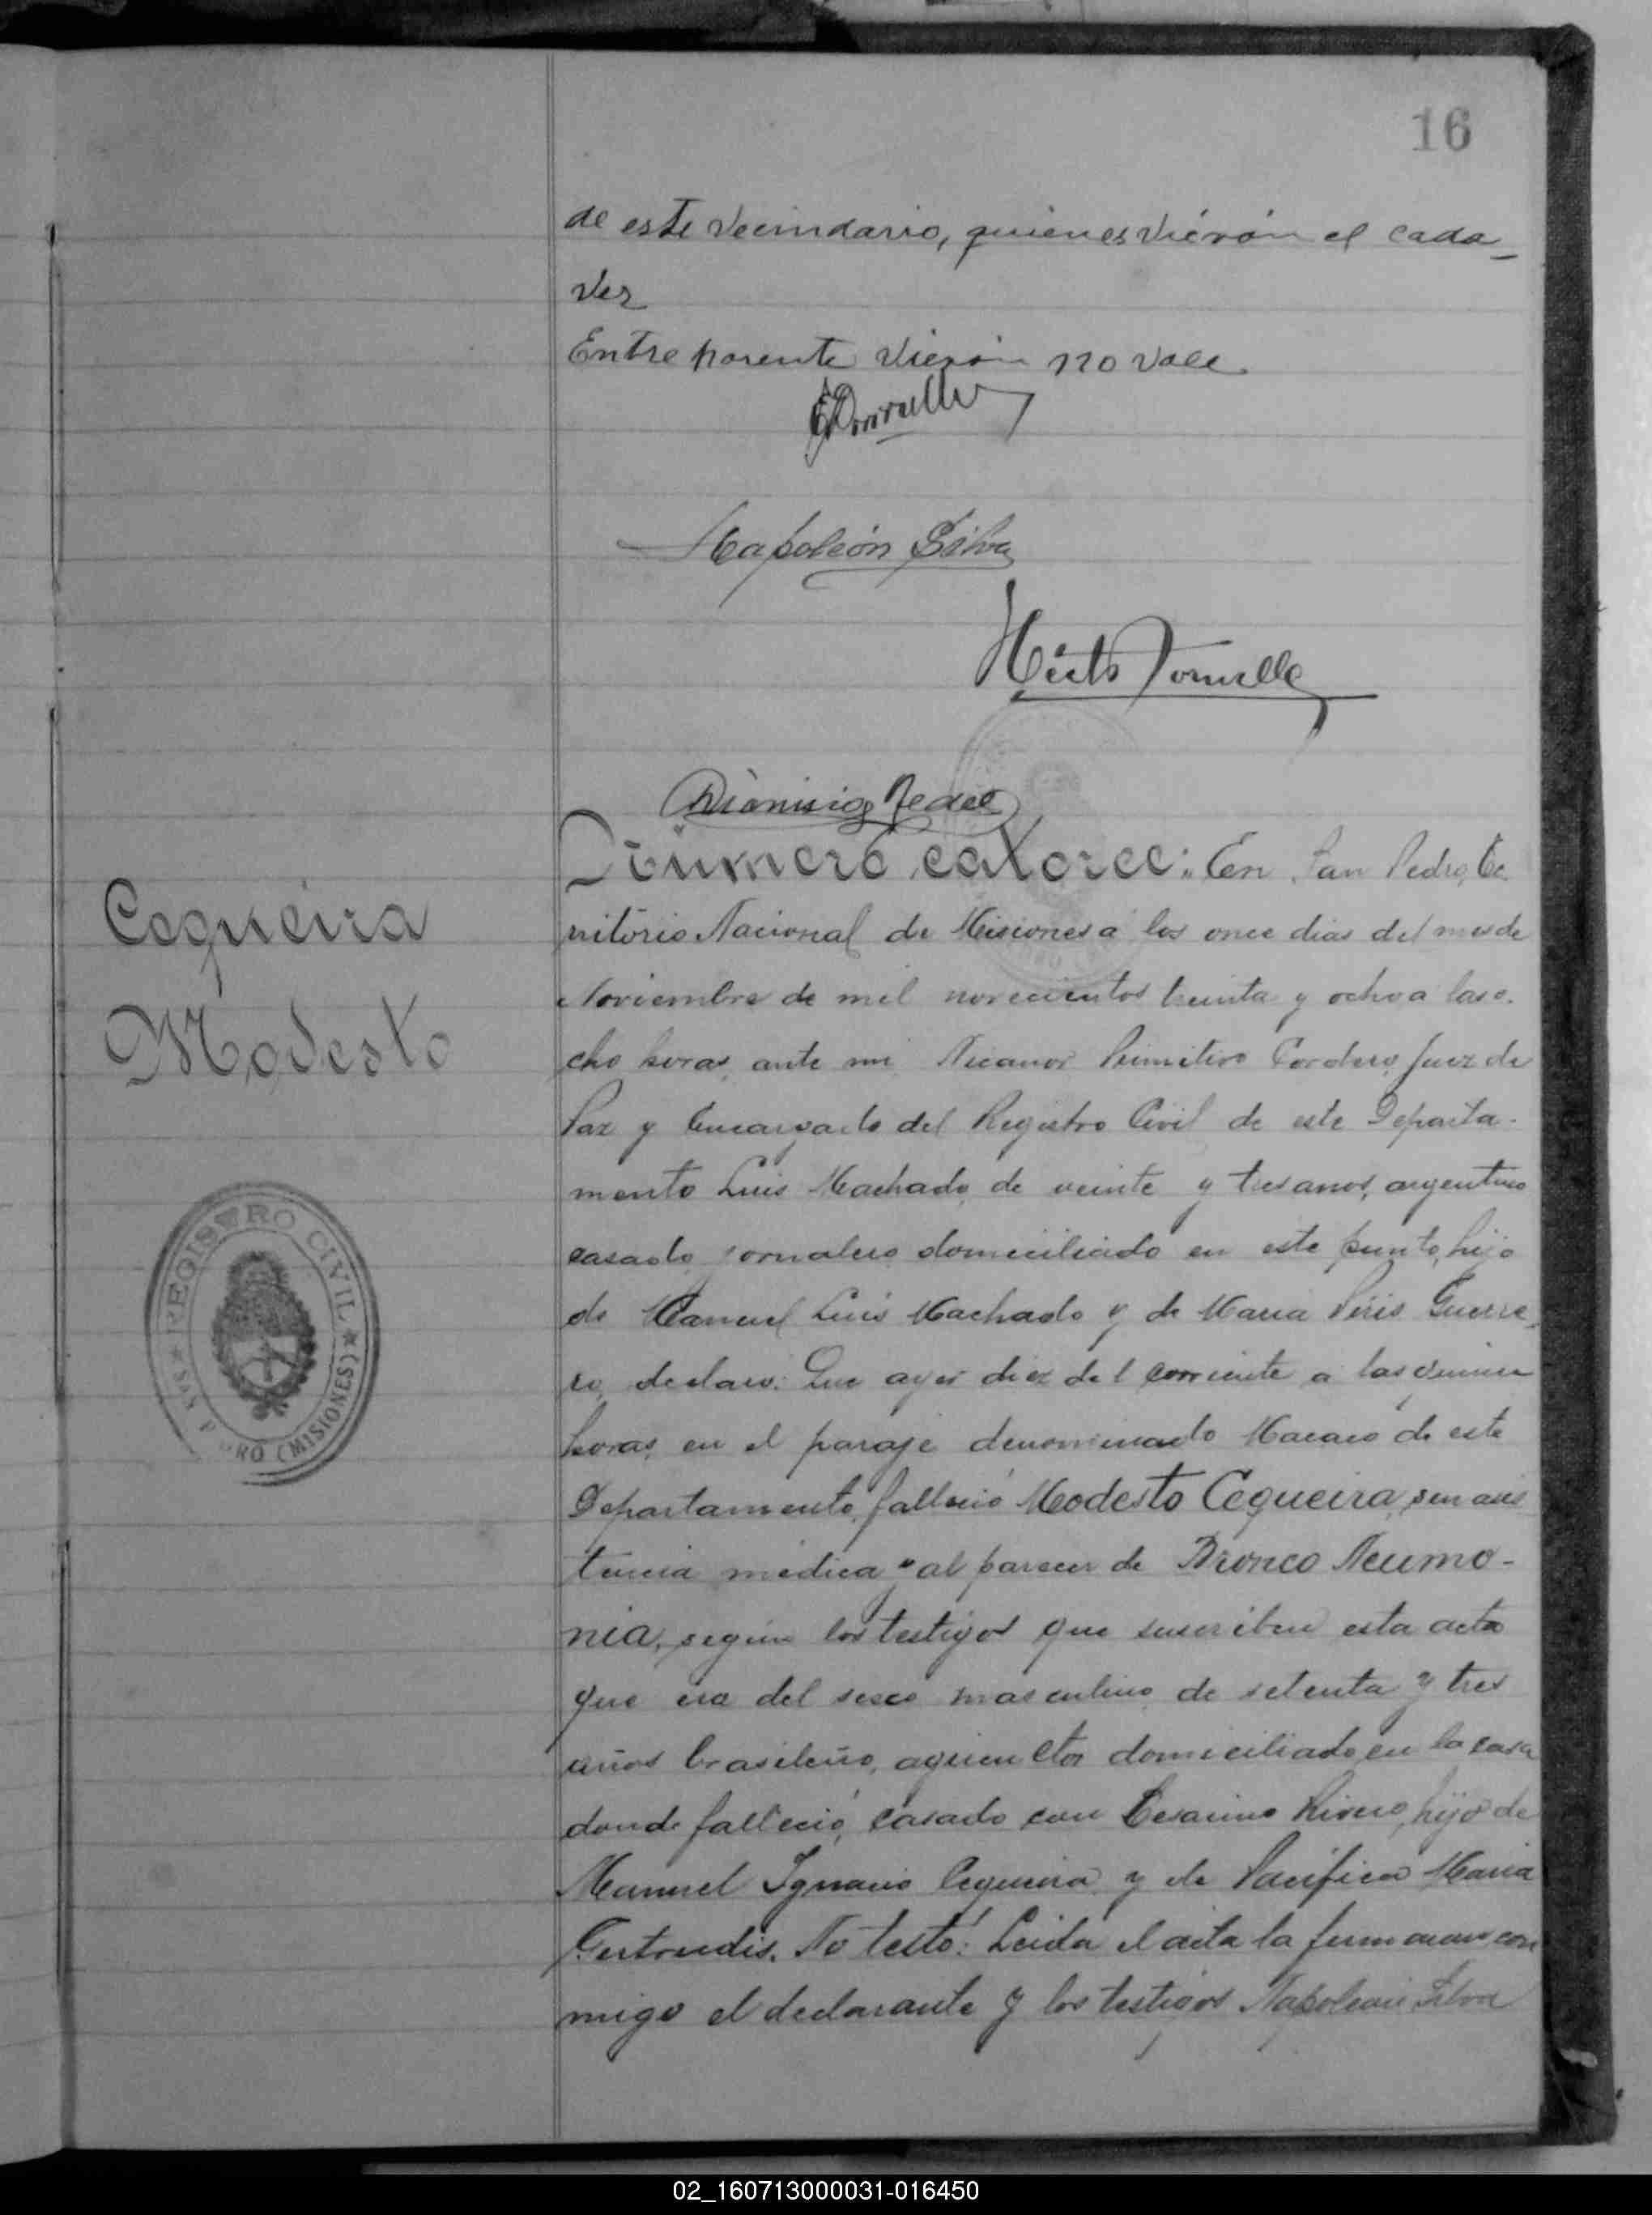 16
de este vecindario, quienes vierón el cada_
ver
Entre parente vierón no vale
Napoleón Silva
Dionisio
Número catorce: En San Pedro, Te
rritório Nacional de Misiones a los once dias del mes de
Noviembre de mil novecientos treinta y ocho a las o.
cho horas, ante mi Nicanor Primitivo Cordero, Juez de
Paz y Encargado del Registro Civil de este Departa-
mento Luis Machado, de veinte y tres anos, argentino
casado, jornalero domiciliado en este punto, hijo
de Manuel Luis Machado y de Maria Guerre_
ro, declaro: Que ayer diez del corriente a las quince
horas, en el paraje denominado Macaco de este
Departamento, falleció Modesto Cequeira, sin asis
tencia médica "al parecer de Bronco Neumo-
nia, según los testigos que suscriben esta acta
que era del sexo masculino de setenta y tres
años brasileño, domiciliado en la casa
donde falleció, casado con hijo de
Manuel Ignacio Cequeira y de Pacífica Maria
Gertrudis. No testó: Leida el acta la firmaron con
migo el declarante y los testigos Napoleón Silva
Cequeira
Modesto
REGISTRO CIVIL
SAN P DRO (MISIONES)
02_160713000031-016450